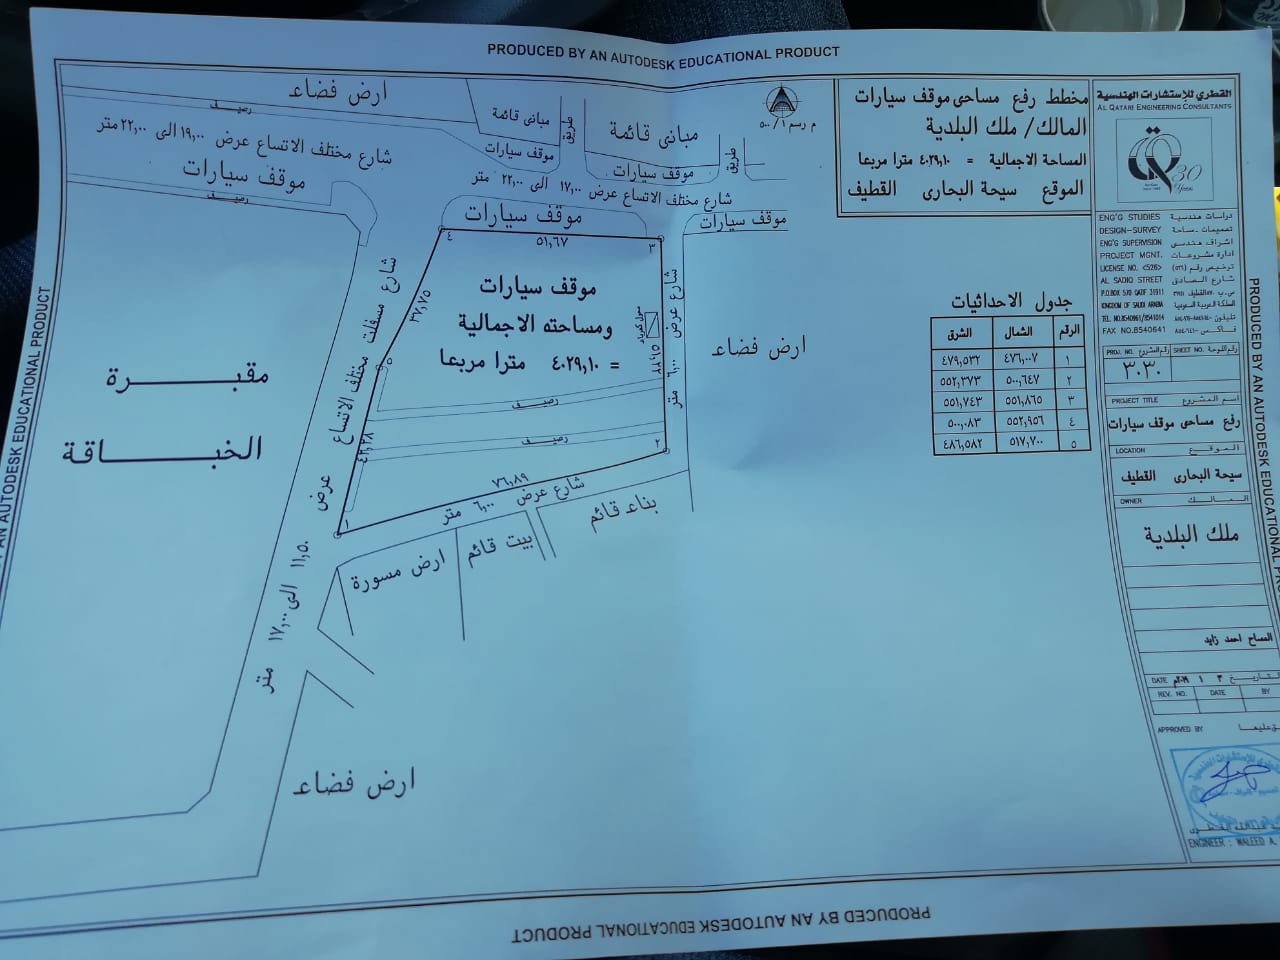 PRODUCED BY AN AUTODESK EDUCATIONAL PRODUCT
ارض فضاء
رصيف
شارع مختلف الاتساع عرض ١٩,٠٠ الى ٢٢,٠٠ متر
موقف سيارات
رصيف
مبانى قائمة
موقف سيارات
طريق
مبانى قائمة
موقف سيارات
طريق
شارع مختلف الاتساع عرض ١٧,٠٠ الى ٢٢,٠٠ متر
موقف سيارات
موقف سيارات
م رسم ١/٥٠٠
مخطط رفع مساحى موقف سيارات
المالك/ ملك البلدية
المساحة الاجمالية = ٤٠٢٩,١٠ مترا مربعا
الموقع سيحة البحارى القطيف
٤
٥١,٦٧
٣
٣٧,٧٥
موقف سيارات
ومساحته الاجمالية
= ٤٠٢٩,١٠ مترا مربعا
شارع عرض ٦,٠٠ متر
ارض فضاء
٥
رصيف
رصيف
٤٢,٢٨
٢
٧٦,٨٩
١
شارع عرض ٦,٠٠ متر
شارع مسفلت مختلف الاتساع عرض ١١,٥٠ الى ١٧,٠٠ متر
مقبرة
الخباقة
ارض مسورة
بيت قائم
بناء قائم
ارض فضاء
جدول الاحداثيات
الرقم الشمال الشرق
١ ٤٧٦,٠٠٧ ٤٧٩,٥٣٢
٢ ٥٠٠,٦٤٧ ٥٥٢,٣٧٣
٣ ٥٥١,٨٦٥ ٥٥١,٧٤٣
٤ ٥٥٢,٩٥٦ ٥٠٠,٠٨٣
٥ ٥١٧,٧٠٠ ٤٨٦,٥٨٢
القطري للإستشارات الهندسية
AL QATARI ENGINEERING CONSULTANTS
30
Years
ENG'G STUDIES دراسات هندسية
DESIGN-SURVEY تصميمات - ساحة
ENG'G SUPERVISION اشراف هندسى
PROJECT MGNT. ادارة مشروعات
LICENSE NO. <526> ترخيص رقم (٥٢٦)
AL SADIQ STREET شارع الصادق
P.O.BOX 510 QATIF 31911
KINGDOM OF SAUDI ARABIA المملكة العربية السعودية
TEL NO.8540961/8541014
FAX NO.8540641
PROJ. NO. رقم المشروع SHEET NO. رقم اللوحة
٣٠٣٠
PROJECT TITLE اسم المشروع
رفع مساحى موقف سيارات
LOCATION الموقع
سيحة البحارى القطيف
OWNER المالك
ملك البلدية
المساح احمد زايد
DATE التاريخ
REV. NO. DATE BY
APPROVED BY
ENGINEER : WALEED A.
PRODUCED BY AN AUTODESK EDUCATIONAL PRODUCT
PRODUCED BY AN AUTODESK EDUCATIONAL PRODUCT
PRODUCED BY AN AUTODESK EDUCATIONAL PRODUCT